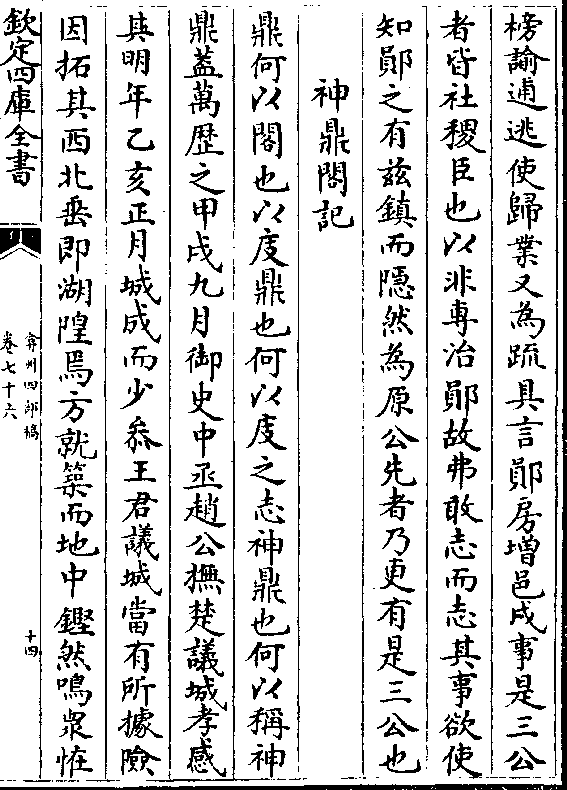 榜諭逋逃使歸業又為疏具言鄖房增邑成事是三公
者皆社稷臣也以非專治鄖故弗敢志而志其事欲使
知鄖之有兹鎮而隱然為原公先者乃更有是三公也
神鼎閣記
鼎何以閣也以庋鼎也何以庋之志神鼎也何以稱神
鼎蓋萬歴之甲戌九月御史中丞趙公撫楚議城孝感
其明年乙亥正月城成而少叅王君議城當有所據險
因拓其西北垂即湖隍焉方就築而地中鏗然鳴衆恠
欽定四庫全書
弇州四部稿
卷七十六
十四